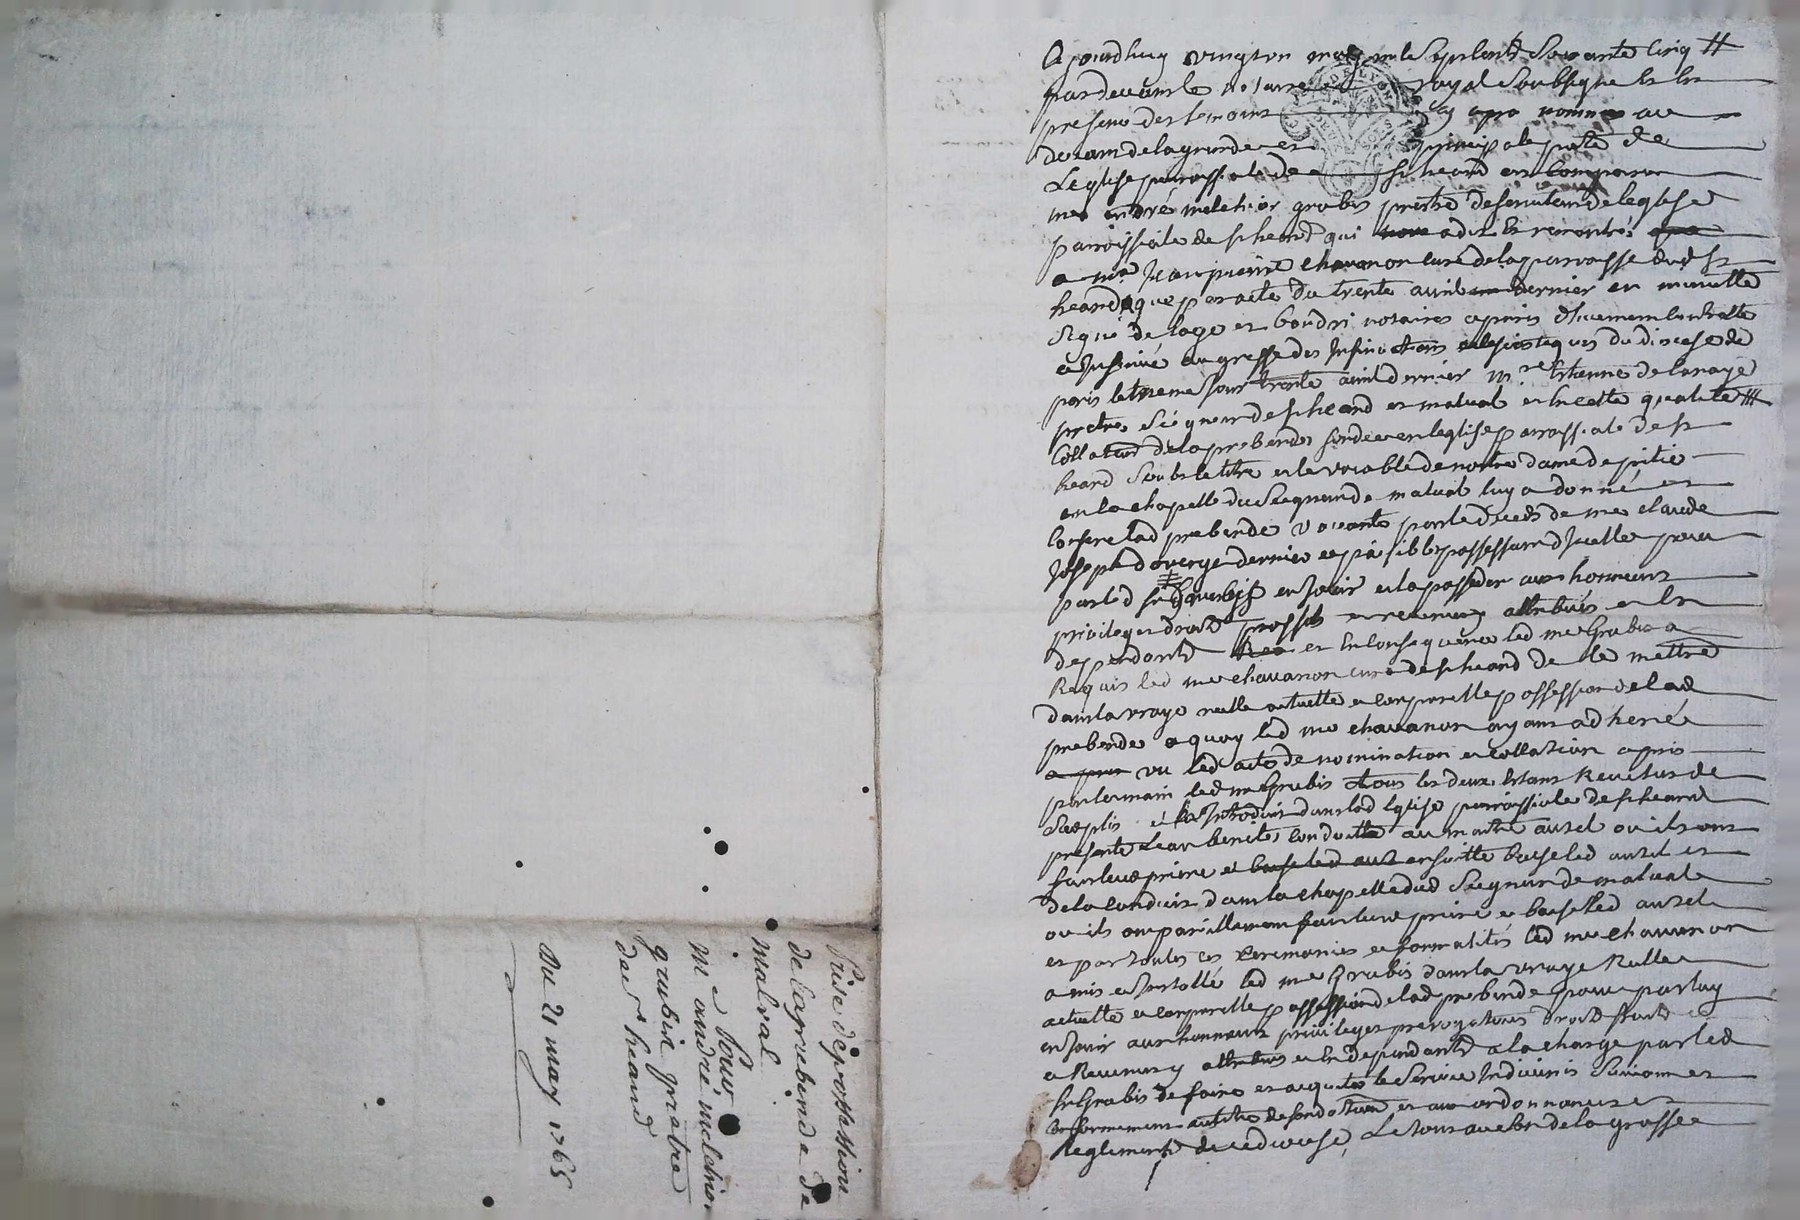 Ajourdhuy vingt un may mil sept cent soixante cinq
pardevant le notaire royal soubsigné et en
presence des temoins cy apres nommés au
devant de la grande et principale porte de
Leglise parroissiale de st heand est comparu
mre andré melchior grubis prestre desserviteur de leglise
parroissiale de st heand qui a dit et remontré
a mre Jean pierre chavanon curé de la parroisse dud st
heand que par acte du trente avril dernier en minutte
signé de lage et boudri notaires a paris controllé
et Insinué au greffe des Insinuations eclesiastiques du diocese de
paris le meme jour trente avril dernier mre Etienne de lanaye
pretre seigneur de st heand et malval et en cette qualité
collateur de la prebende fondée en leglise parroissiale de st
heand soubs le titre et le vocable de notre dame de pitié
en la chapelle du seigneur de malval luy a donné et
conferé lad prebende vacante par le deceds de mre claude
Joseph dovergé dernier et paisible possesseur d'Icelle pour
par led sr en Jouir et la posseder aux honneurs
privileges droits proffits et revenus y attribués et en
dependants et en consequence led mre Grubis a
Requis led mre chavanon curé de st heand de le mettre
dans la vraye reelle actuelle et corporelle possession de lad
prebende a quoy led mre chavanon ayant adheré
vu led acte de nomination et collation a pris
par la main led mre Grubis tous les deux Etant Revetus de
surplis et la Introduit dans lad Eglise parroissiale de st heand
presenté Leau benite conduitte au maitre autel ou ils ont
fait leur priere et ensuitte baisé led autel et
de la conduit dans la chapelle dud seigneur de malval
ou ils ont pareillement fait leur priere et baisé led autel
et par toutes ces ceremonies et formalités led mre chavanon
a mis et Installé led mre Grubis dans la vraye Reelle
actuelle et corporelle possession de lad prebende pour par luy
en Jouir aux honneurs privileges prerogatives droits fruits et
et Revenus y attribués et en dependants a la charge par led
sr Grubis de faire et acquiter le service divin
conformement au titre de fondation et aux ordonnances et
reglements de ce diocese, Le tout au ebri de la grosse
Prise de possession
de la prebende de
malval
Pour
Me andré melchior
grubis pretre
de st heand
Du 21 may 1765